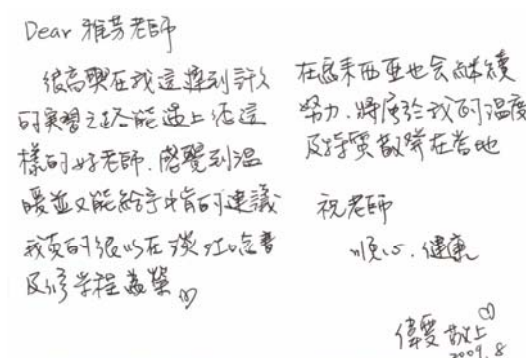 Dear 雅芳老師
很高興在我這達到許久
的實習之路能遇上您這
樣的好老師.感覺到溫
暖並又能給予中肯的建議
我真的很以在淡江唸書
及修學程為榮
在馬來西亞也会繼續
努力.將屬於我的溫度
及特質散發在當地
祝老師
順心.健康
敬上
2009.8